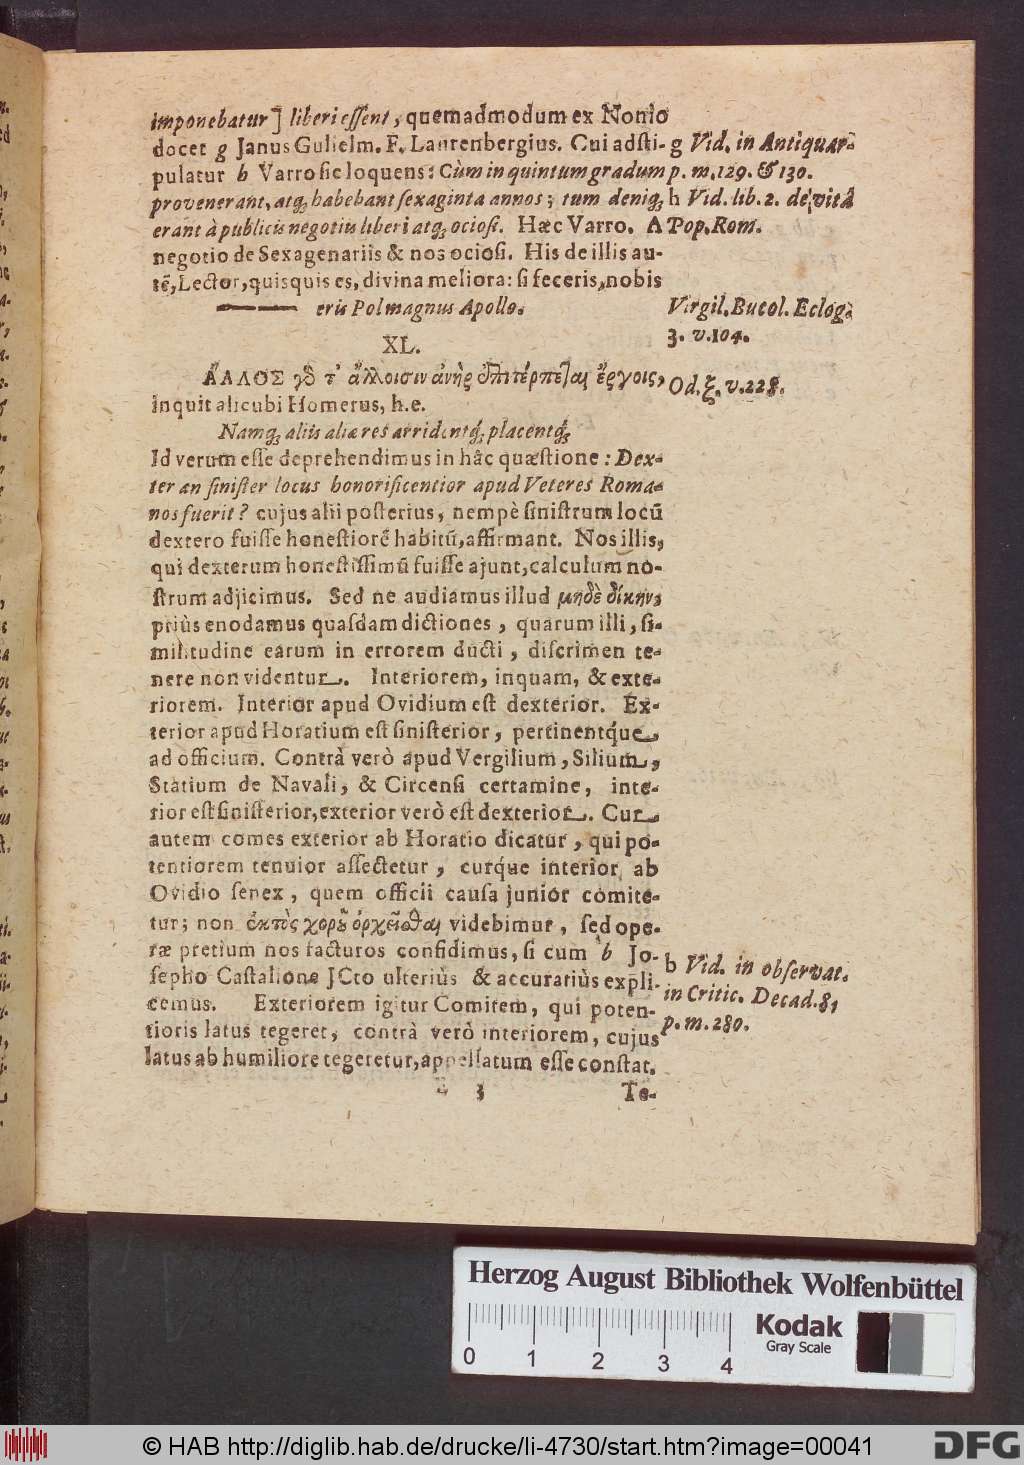 imponebatur] liberi essent, quemadmodum ex Nonio
docet g Janus Gulielm. F. Laurenbergius. Cui adsti-
g Vid. in Antiquar.
pulatur h Varro sic loquens: Cùm in quintum gradum
p. m. 129. & 130.
provenerant, atq; habebant sexaginta annos; tum deniq;
h Vid. lib. 2. de vitâ
erant à publicis negotiis liberi atq; ociosi. Hæc Varro. A
Pop. Rom.
negotio de Sexagenariis & nos ociosi. His de illis au-
tẽ, Lector, quisquis es, divina meliora: si feceris, nobis
eris Pol magnus Apollo.
Virgil. Bucol. Eclog.
3. v. 104.
XL.
ἌΛΛΟΣ γδ τ' ἄλλοισιν ἀνὴρ ἐπιτέρπεται ἔργοις,
Od. ξ. v. 228.
inquit alicubi Homerus, h.e.
Namq; aliis aliæ res arridentq́; placentq́;
Id verum esse deprehendimus in hâc quæstione: Dex-
ter an sinister locus honorificentior apud Veteres Roma-
nos fuerit? cujus alii posterius, nempè sinistrum locũ
dextero fuisse honestiorẽ habitũ, affirmant. Nos illis,
qui dexterum honestissimũ fuisse ajunt, calculum no-
strum adjicimus. Sed ne audiamus illud μηδὲ δίκην,
priùs enodamus quasdam dictiones, quarum illi, si-
militudine earum in errorem ducti, discrimen te-
nere non videntur. Interiorem, inquam, & exte-
riorem. Interior apud Ovidium est dexterior. Ex-
terior apud Horatium est sinisterior, pertinentq́ue
ad officium. Contrà verò apud Vergilium, Silium,
Statium de Navali, & Circensi certamine, inte-
rior est sinisterior, exterior verò est dexterior. Cur
autem comes exterior ab Horatio dicatur, qui po-
tentiorem tenuior assectetur, curq́ue interior ab
Ovidio senex, quem officii causa junior comite-
tur; non ἐκτὸς χορῦ ὀρχεῖσθαι videbimur, sed ope-
ræ pretium nos facturos confidimus, si cum b Jo-
b Vid. in observat.
sepho Castalione JCto ulteriùs & accuratiùs expli-
in Critic. Decad. 8,
cemus. Exteriorem igitur Comitem, qui poten-
p. m. 280.
tioris latus tegeret, contrà verò interiorem, cujus
latus ab humiliore tegeretur, appellatum esse constat.
E 3 Te-
Herzog August Bibliothek Wolfenbüttel
Kodak
Gray Scale
0 1 2 3 4
© HAB http://diglib.hab.de/drucke/li-4730/start.htm?image=00041
DFG